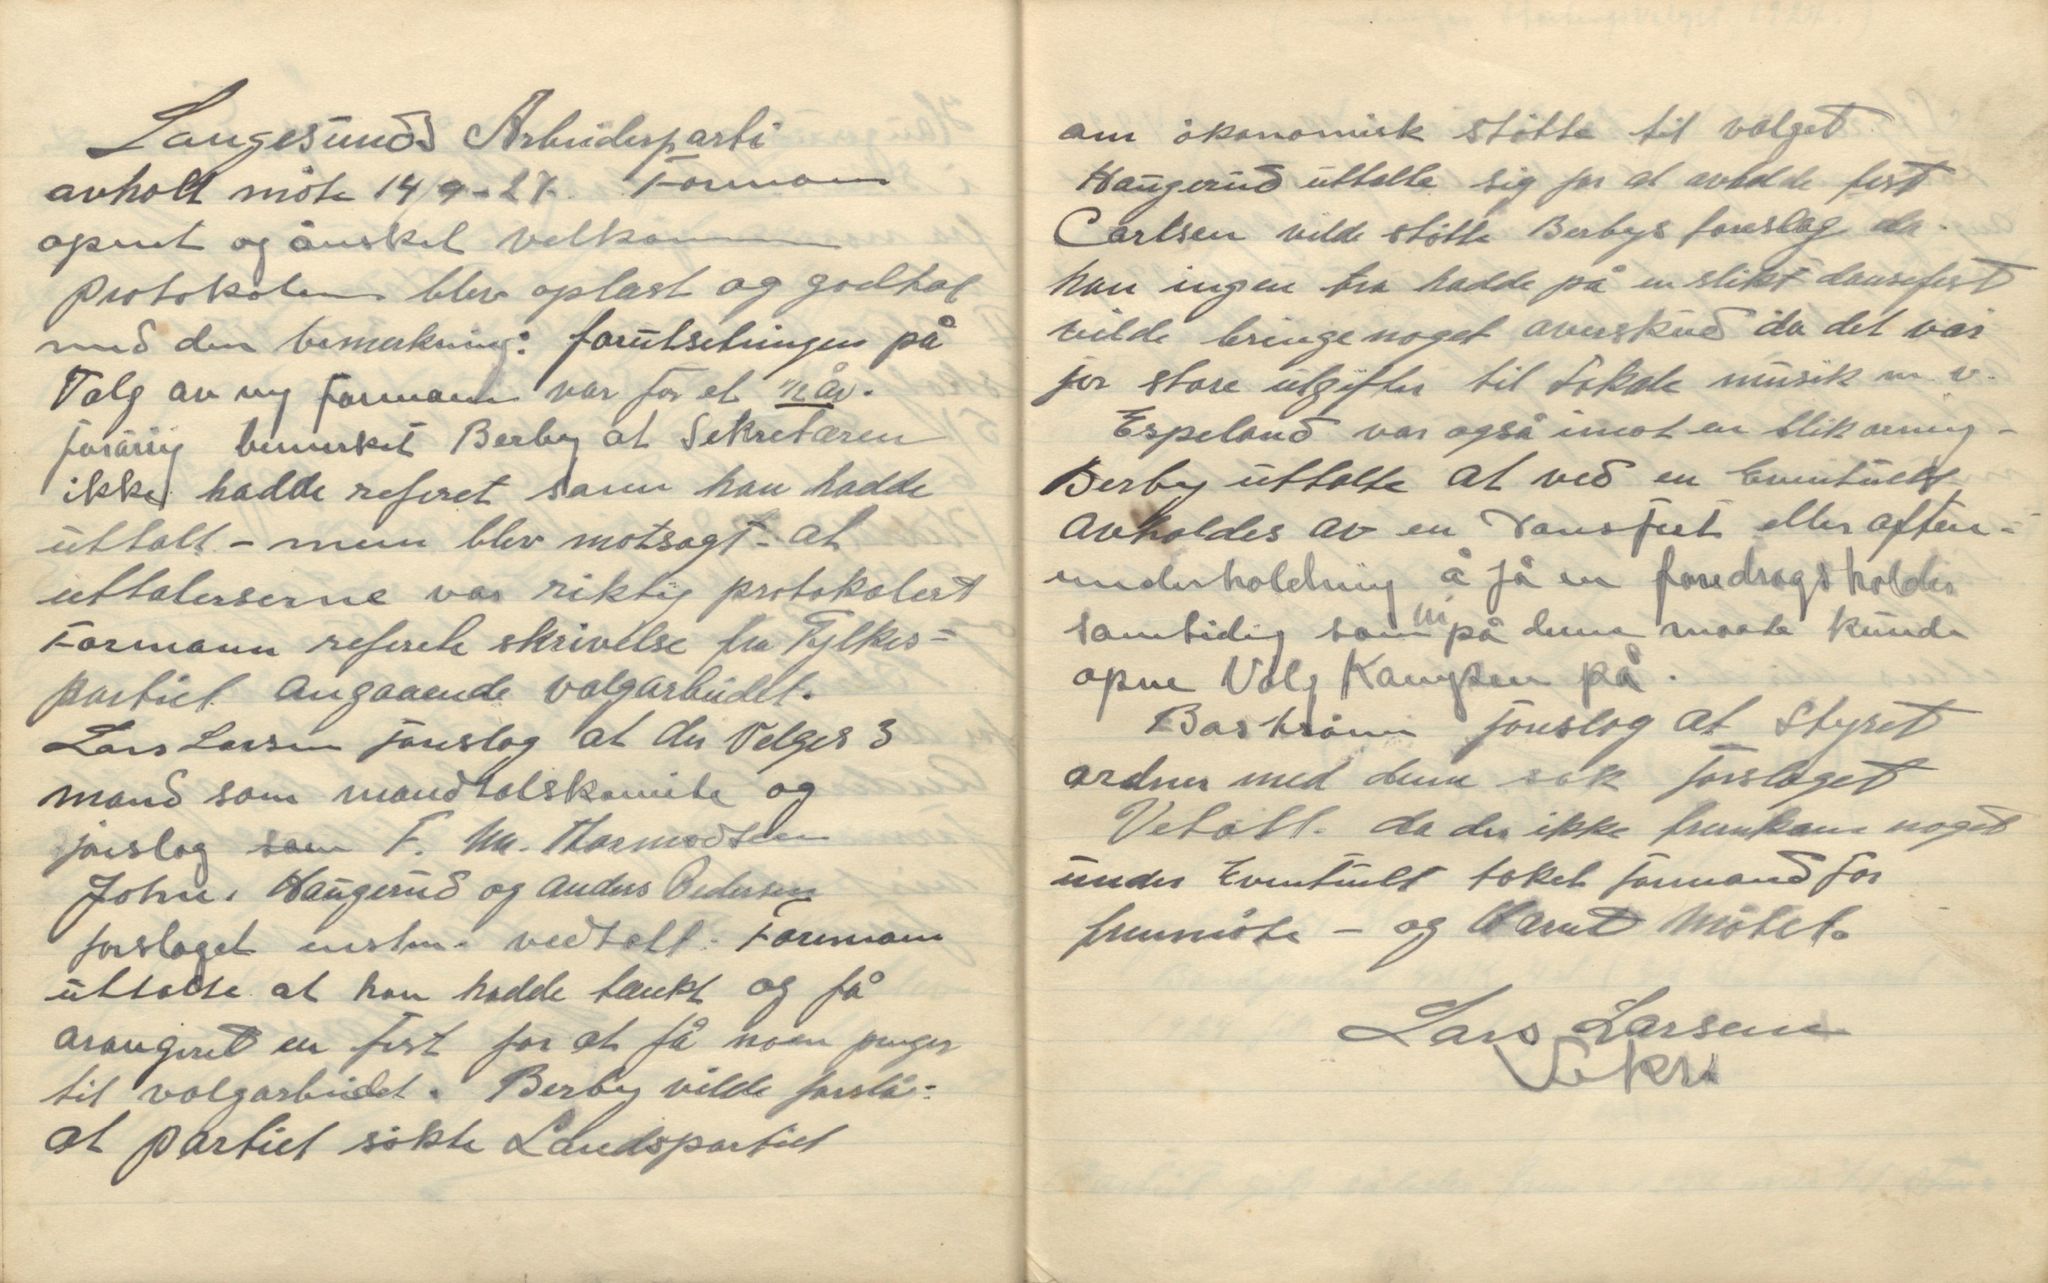 Langesunds Arbeiderparti
avholt möte 14/9-27. Formann
opnet og önsket velkommen
Protokolen blev oplæst og godtat
med den bemerkning: forutsetningen på
Valg av ny formann var for et ½ år.
forövrig bemerket Berby at Sekretæren
ikke hadde referet som han hadde
uttalt – men blev motsagt – at
uttalerserne var riktig protokolert
Formann referete skrivelse fra Fylkes=
partiet angaaende valgarbeidet.
Lars Larsen foreslog at der Velges 3
mand som mandtalskomite og
foreslog som F. M. Thormodsen
John. Haugerud og Anders Pedersen
forslaget enstm. vedtatt. Formann
uttalte at han hadde tænkt og få
arangeret en fest for at få noen penger
til valgarbeidet. Berby vilde foreslå-
at partiet sökte Landspartiet
om ökonomisk stötte til valget
Haugerud uttalte sig for at avholde fest
Carlsen vilde stötte Berbys foreslag da.
han ingen tro hadde på en slikt dansefest
vilde bringe noget averskud da det var
for store utgifter til Lokale musik m v.
Espeland var også imot en slik ordning –
Berby uttalte at ved en Eventuelt
avholdes av en Dansfest eller aften=
underholdning å få en foredragsholder
samtidig som vi på denne maate kunde
opne Valg Kampen på.
Boström foreslog at Styret
ordner med denne sak forslaget
Vetatt. da der ikke fremkom noget
under Eventuelt takket formand for
fremmöte – og Hævet Mötet.
Lars Larsen
Sekr.